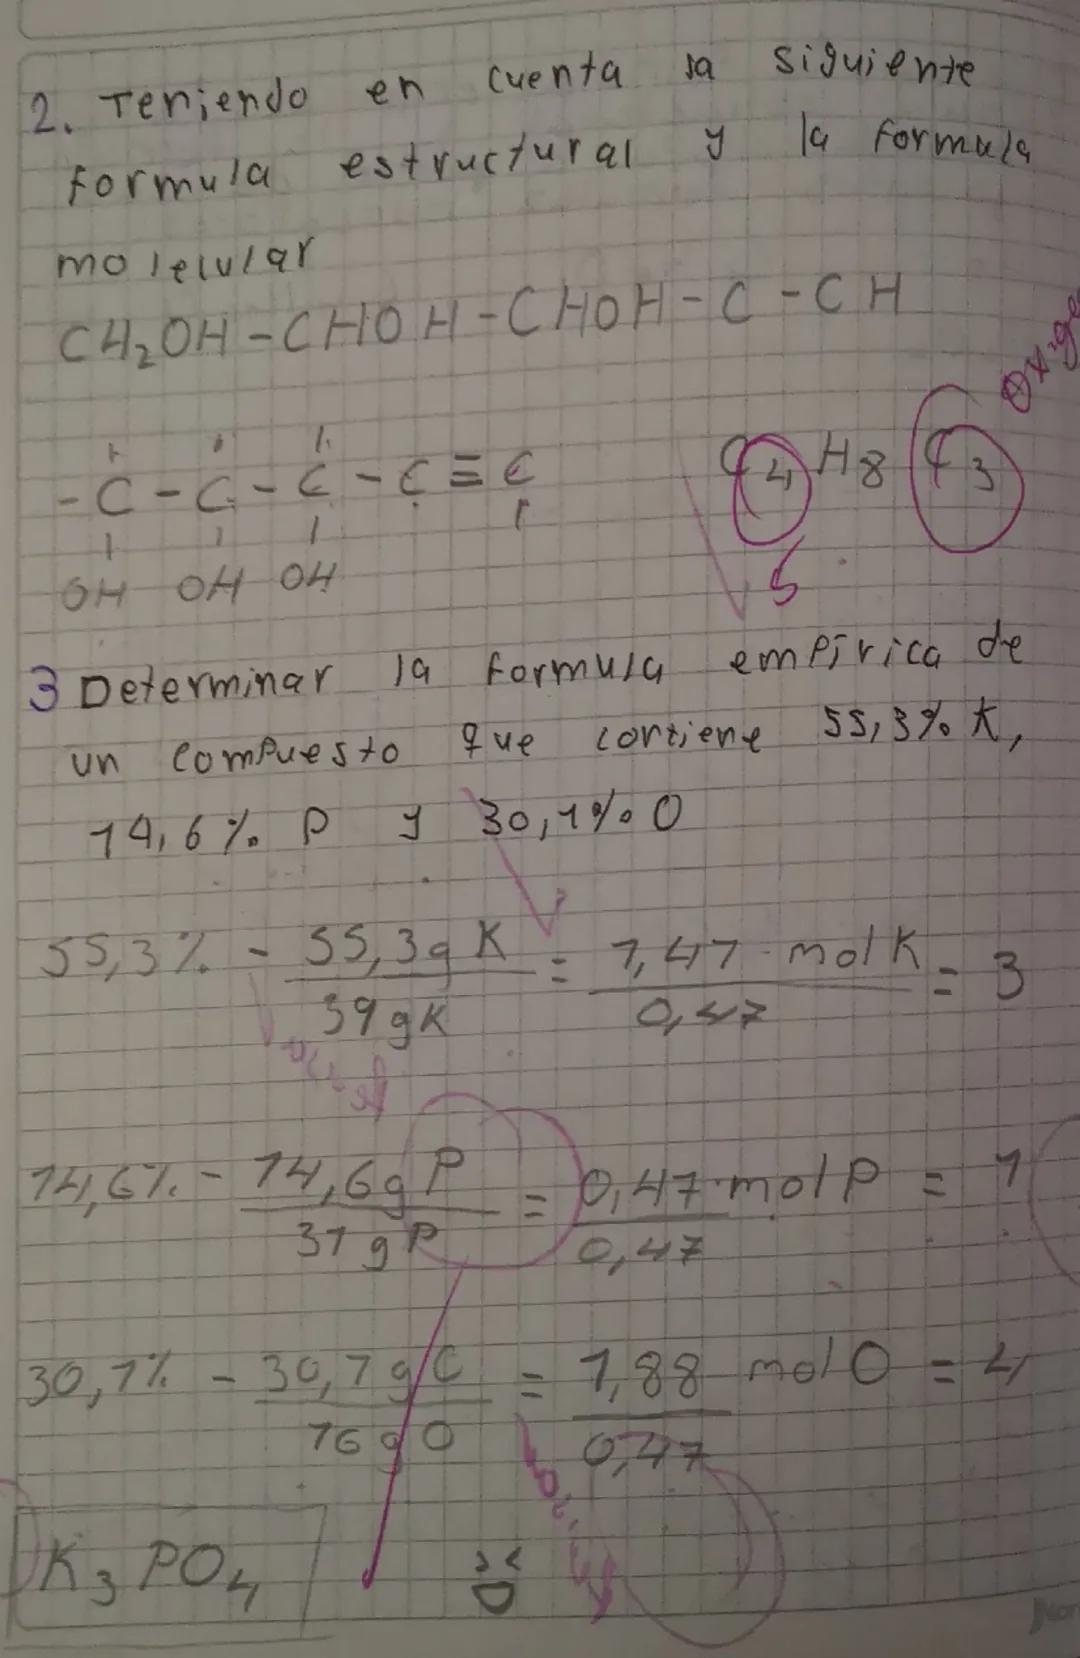 2. Teniendo en cuenta la siguiente
formula estructural y la formula
molelular
CH₂OH-CHOH-CHOH-C-CH
-C-C-C-C≡C
OH OH OH
C4 H8 C3
5
3 Determinar la formula empírica de
un compuesto que contiene 55,3% K,
14,6% P y 30,1% O
55,3% - 55,3g K / 39 gK = 1,47 mol K / 0,47 = 3
14,6% - 14,6g P / 31 g P = 0,47 mol P / 0,47 = 1
30,1% - 30,1 g O / 16 g O = 1,88 mol O / 0,47 = 4
K₃PO₄